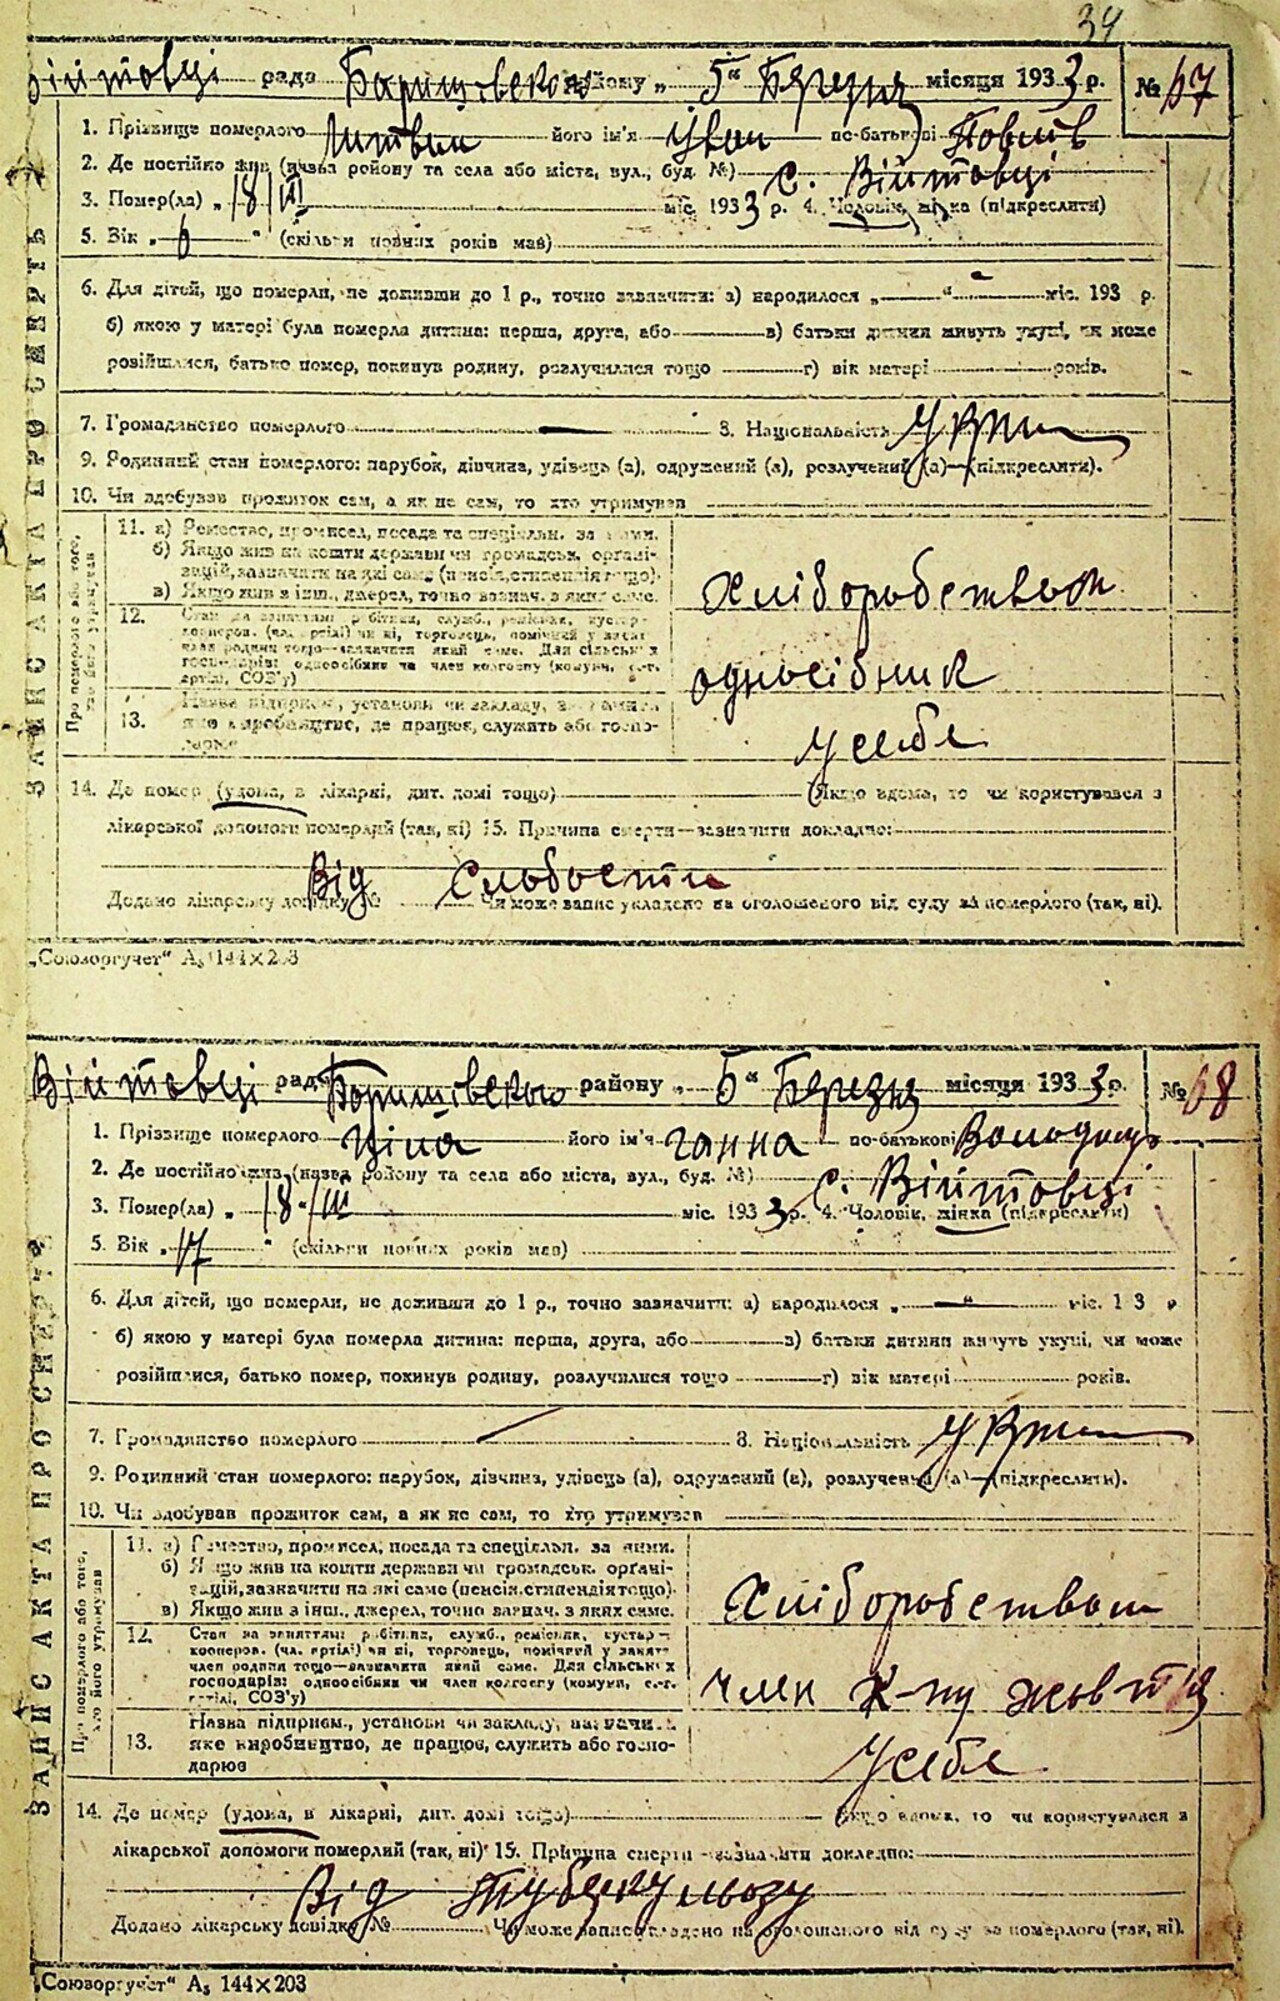 34
Війтовці рада Баришівського району „ 5 “ Березня місяця 1933 р. № 67
1. Прізвище померлого Литвин його ім'я Іван по-батькові Павлів
2. Де постійно жив (назва району та села або міста, вул., буд. №) С. Війтовці
3. Помер(ла) „ 8/III міс. 1933 р. 4. Чоловік, жінка (підкреслити)
5. Вік „ 6 “ (скільки повних років мав)
6. Для дітей, що померли, не доживши до 1 р., точно зазначити: а) народилося „ — “ міс. 193 р.
б) якою у матері була померла дитина: перша, друга, або в) батьки дитини живуть укупі, чи може
розійшлися, батько помер, покинув родину, розлучилися тощо г) вік матері років.
7. Громадянство померлого — 8. Національність Укр
9. Родинний стан померлого: парубок, дівчина, удівець (а), одружений (а), розлучений (а)—(підкреслити).
10. Чи здобував прожиток сам, а як не сам, то хто утримував
ЗАПИС АКТА ПРО СМЕРТЬ
Про померлого або того, хто його утримував
11. а) Ремество, промисел, посада та спеціяльн. за ними.
б) Якщо жив на кошти держави чи громадськ. органі-
зацій, зазначити на які саме (пенсія, стипендія тощо).
в) Якщо жив з інш., джерел, точно вазнач. з яких саме.
Хліборобством
12. Стан за заняттям: робітник, служб., ремісник, кустар-
кооперов. (чл. артілі) чи ні, торговець, помічний у занят.
член родини тощо—зазначити який саме. Для сільських
господарів: одноосібник чи член колгоспу (комуни, с.-г.
артілі, СОЗ'у)
односібник
13. Назва підприєм., установи чи закладу, зазначити
яке виробництво, де працює, служить або госпо-
дарює
У себе
14. Де помер (удома, в лікарні, дит. домі тощо) (Якщо вдома, то чи користувався з
лікарської допомоги померлий (так, ні) 15. Причина смерти—зазначити докладно:
Від Слабости
Додано лікарську довідку № Чи може запис укладено на оголошеного від суду за померлого (так, ні).
„Союзоргучет“ А₅ 144×203
Війтовці рада Баришівського району „ 5 “ Березня місяця 1933 р. № 68
1. Прізвище померлого Ціпа його ім'я Ганна по-батькові
2. Де постійно жив (назва району та села або міста, вул., буд. №) С. Війтовці
3. Помер(ла) „ 8/III міс. 1933 р. 4. Чоловік, жінка (підкреслити)
5. Вік „ 17 “ (скільки повних років мав)
6. Для дітей, що померли, не доживши до 1 р., точно зазначити: а) народилося „ — “ міс. 193 р
б) якою у матері була померла дитина: перша, друга, або в) батьки дитини живуть укупі, чи може
розійшлися, батько помер, покинув родину, розлучилися тощо г) вік матері років.
7. Громадянство померлого — 8. Національність Укр
9. Родинний стан померлого: парубок, дівчина, удівець (а), одружений (а), розлучений (а)—(підкреслити).
10. Чи здобував прожиток сам, а як не сам, то хто утримував
ЗАПИС АКТА ПРО СМЕРТЬ
Про померлого або того, хто його утримував
11. а) Ремество, промисел, посада та спеціяльн. за ними.
б) Якщо жив на кошти держави чи громадськ. органі-
зацій, зазначити на які саме (пенсія, стипендія тощо).
в) Якщо жив з інш., джерел, точно вазнач. з яких саме.
Хліборобством
12. Стан за заняттям: робітник, служб., ремісник, кустар—
кооперов. (чл. артілі) чи ні, торговець, помічний у занят.
член родини тощо—вазначити який саме. Для сільських
господарів: одноосібник чи член колгоспу (комуни, с.-г.
артілі, СОЗ'у)
член К-пу
13. Назва підприєм., установи чи закладу, зазначити
яке виробництво, де працює, служить або госпо-
дарює
У себе
14. Де помер (удома, в лікарні, дит. домі тощо) (Якщо вдома, то чи користувався з
лікарської допомоги померлий (так, ні) 15. Причина смерти—зазначити докладно:
Від Туберкульозу
Додано лікарську довідку № Чи може запис укладено на оголошеного від суду за померлого (так, ні).
„Союзоргучет“ А₅ 144×203